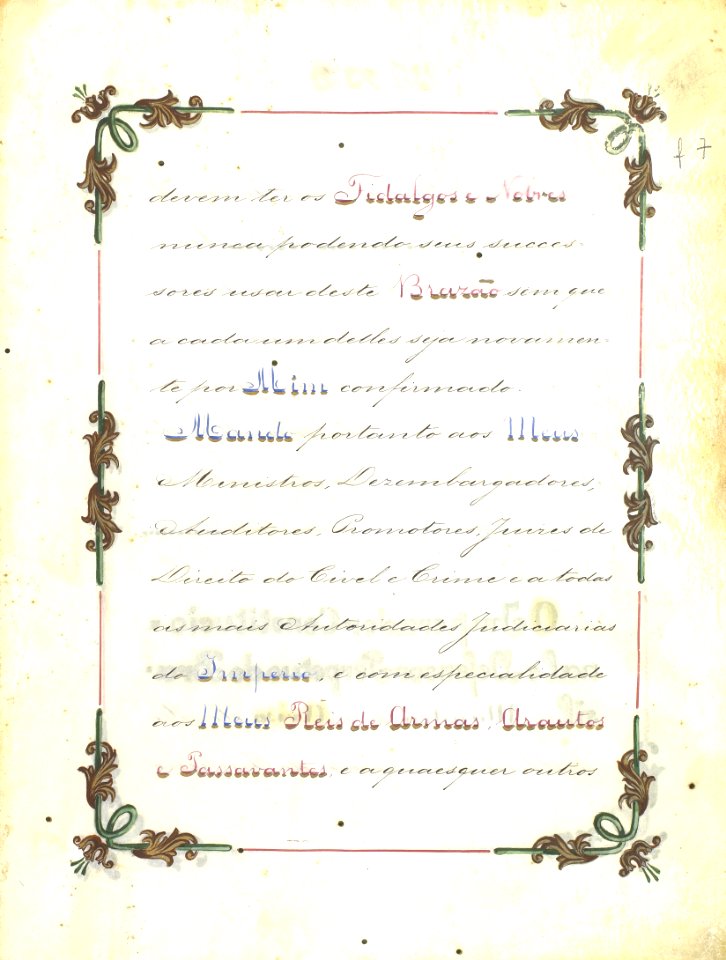 f 7
devem ter os Fidalgos e Nobres
nunca podendo seus succes-
sores usar deste Brazão sem que
a cada um delles seja novamen-
te por Mim confirmado.
Mando portanto aos Meus
Ministros, Dezembargadores,
Auditores, Promotores, Juizes de
Direito do Civel e Crime e a todas
as mais Autoridades Judiciarias
do Imperio, e com especialidade
aos Meus Reis de Armas, Arautos
e Passavantes, e a quaesquer outros